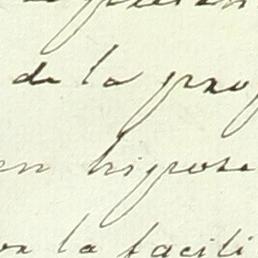 de la pro
en higrose
la facili